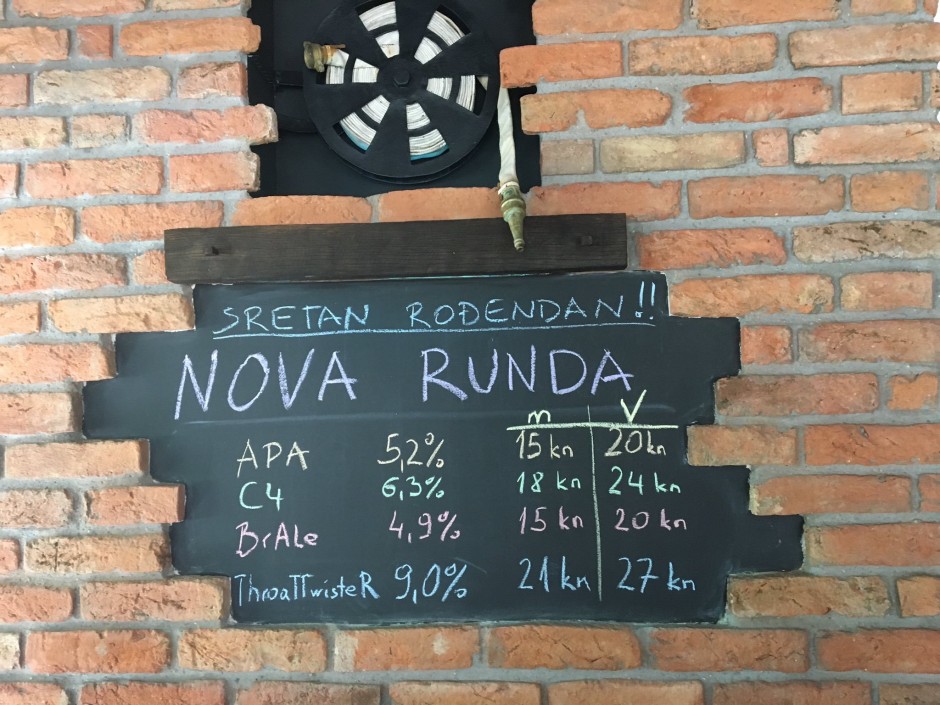 SRETAN ROĐENDAN!!
NOVA RUNDA
m V
APA 5,2% 15 kn 20 kn
C4 6,3% 18 kn 24 kn
BrAle 4,9% 15 kn 20 kn
ThroaTTwisteR 9,0% 21 kn 27 kn